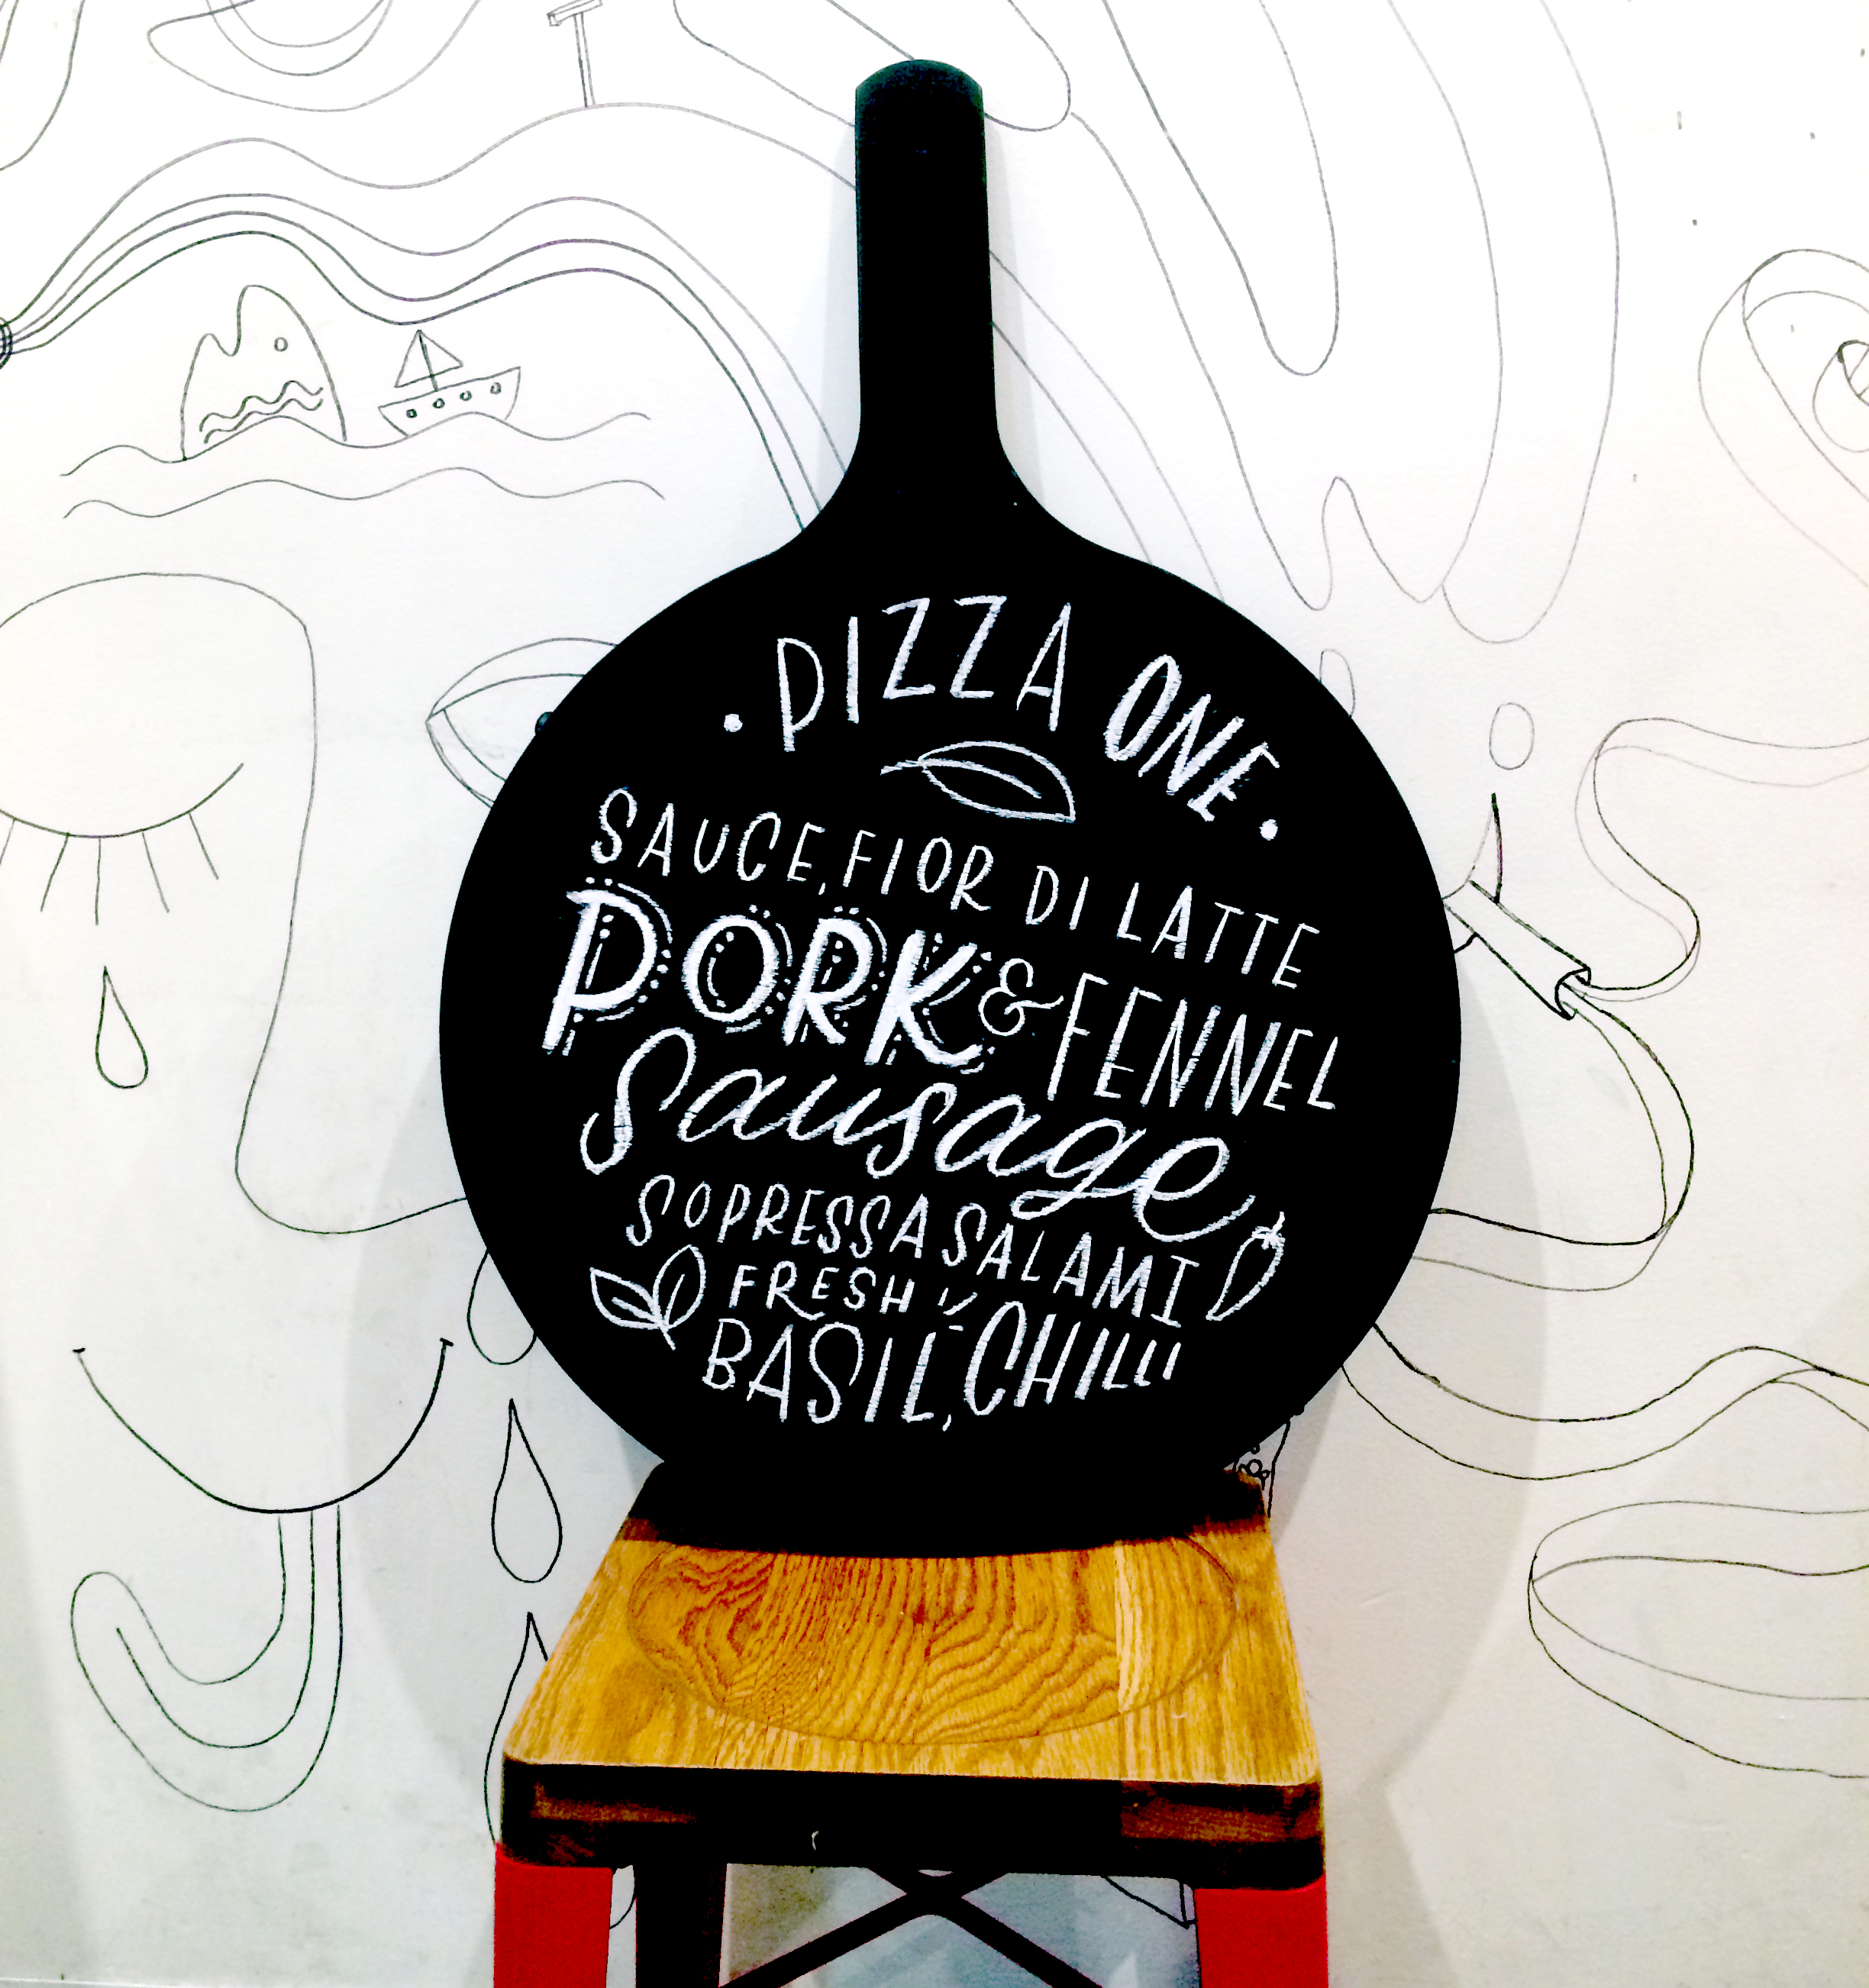 · PIZZA ONE ·
SAUCE, FIOR DI LATTE
PORK & FENNEL
Sausage
SOPRESSA SALAMI
FRESH
BASIL, CHILLI